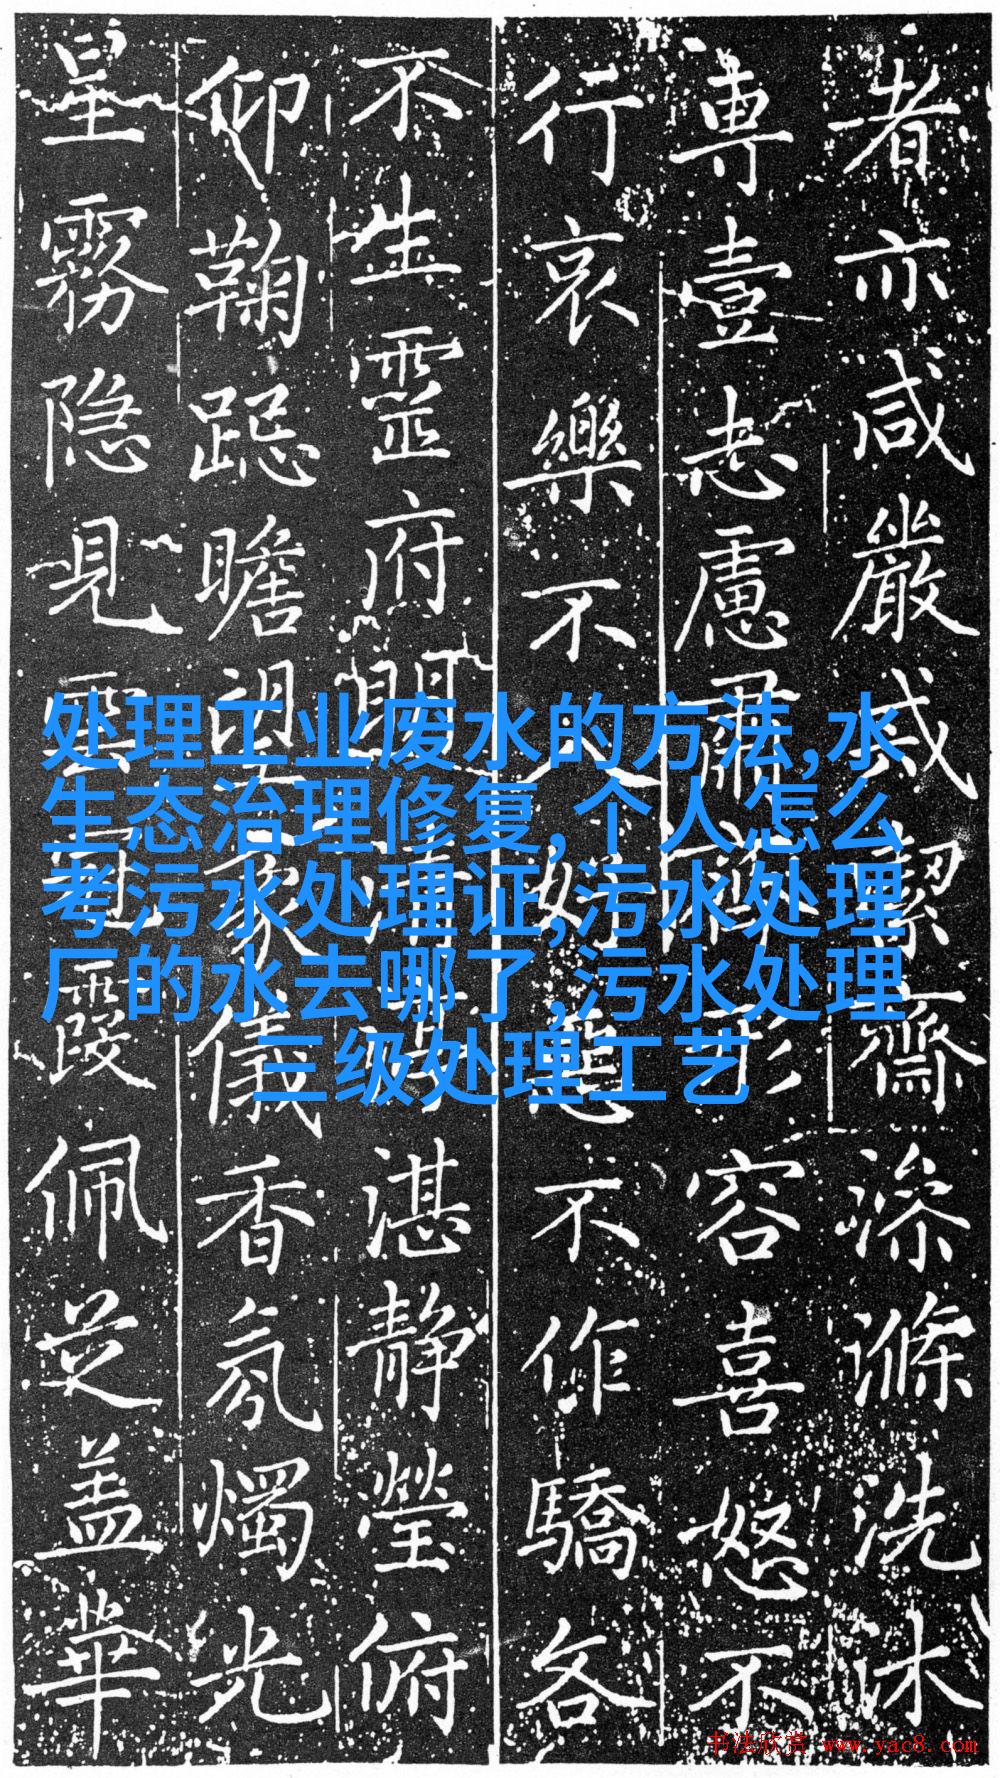 者亦咸嚴戒絜齋澡滌洗沐
專壹志慮肅形容喜怒不
行哀樂不入怠不作驕各
不生靈府開湛静瑩俯
仰鞠跽瞻望象儀香氛燭光
星霧隐見雲冠霞佩芝盖華
处理工业废水的方法,水
生态治理修复,个人怎么
考污水处理证,污水处理
厂的水去哪了,污水处理
三级处理工艺
书法欣赏 www.yac8.com